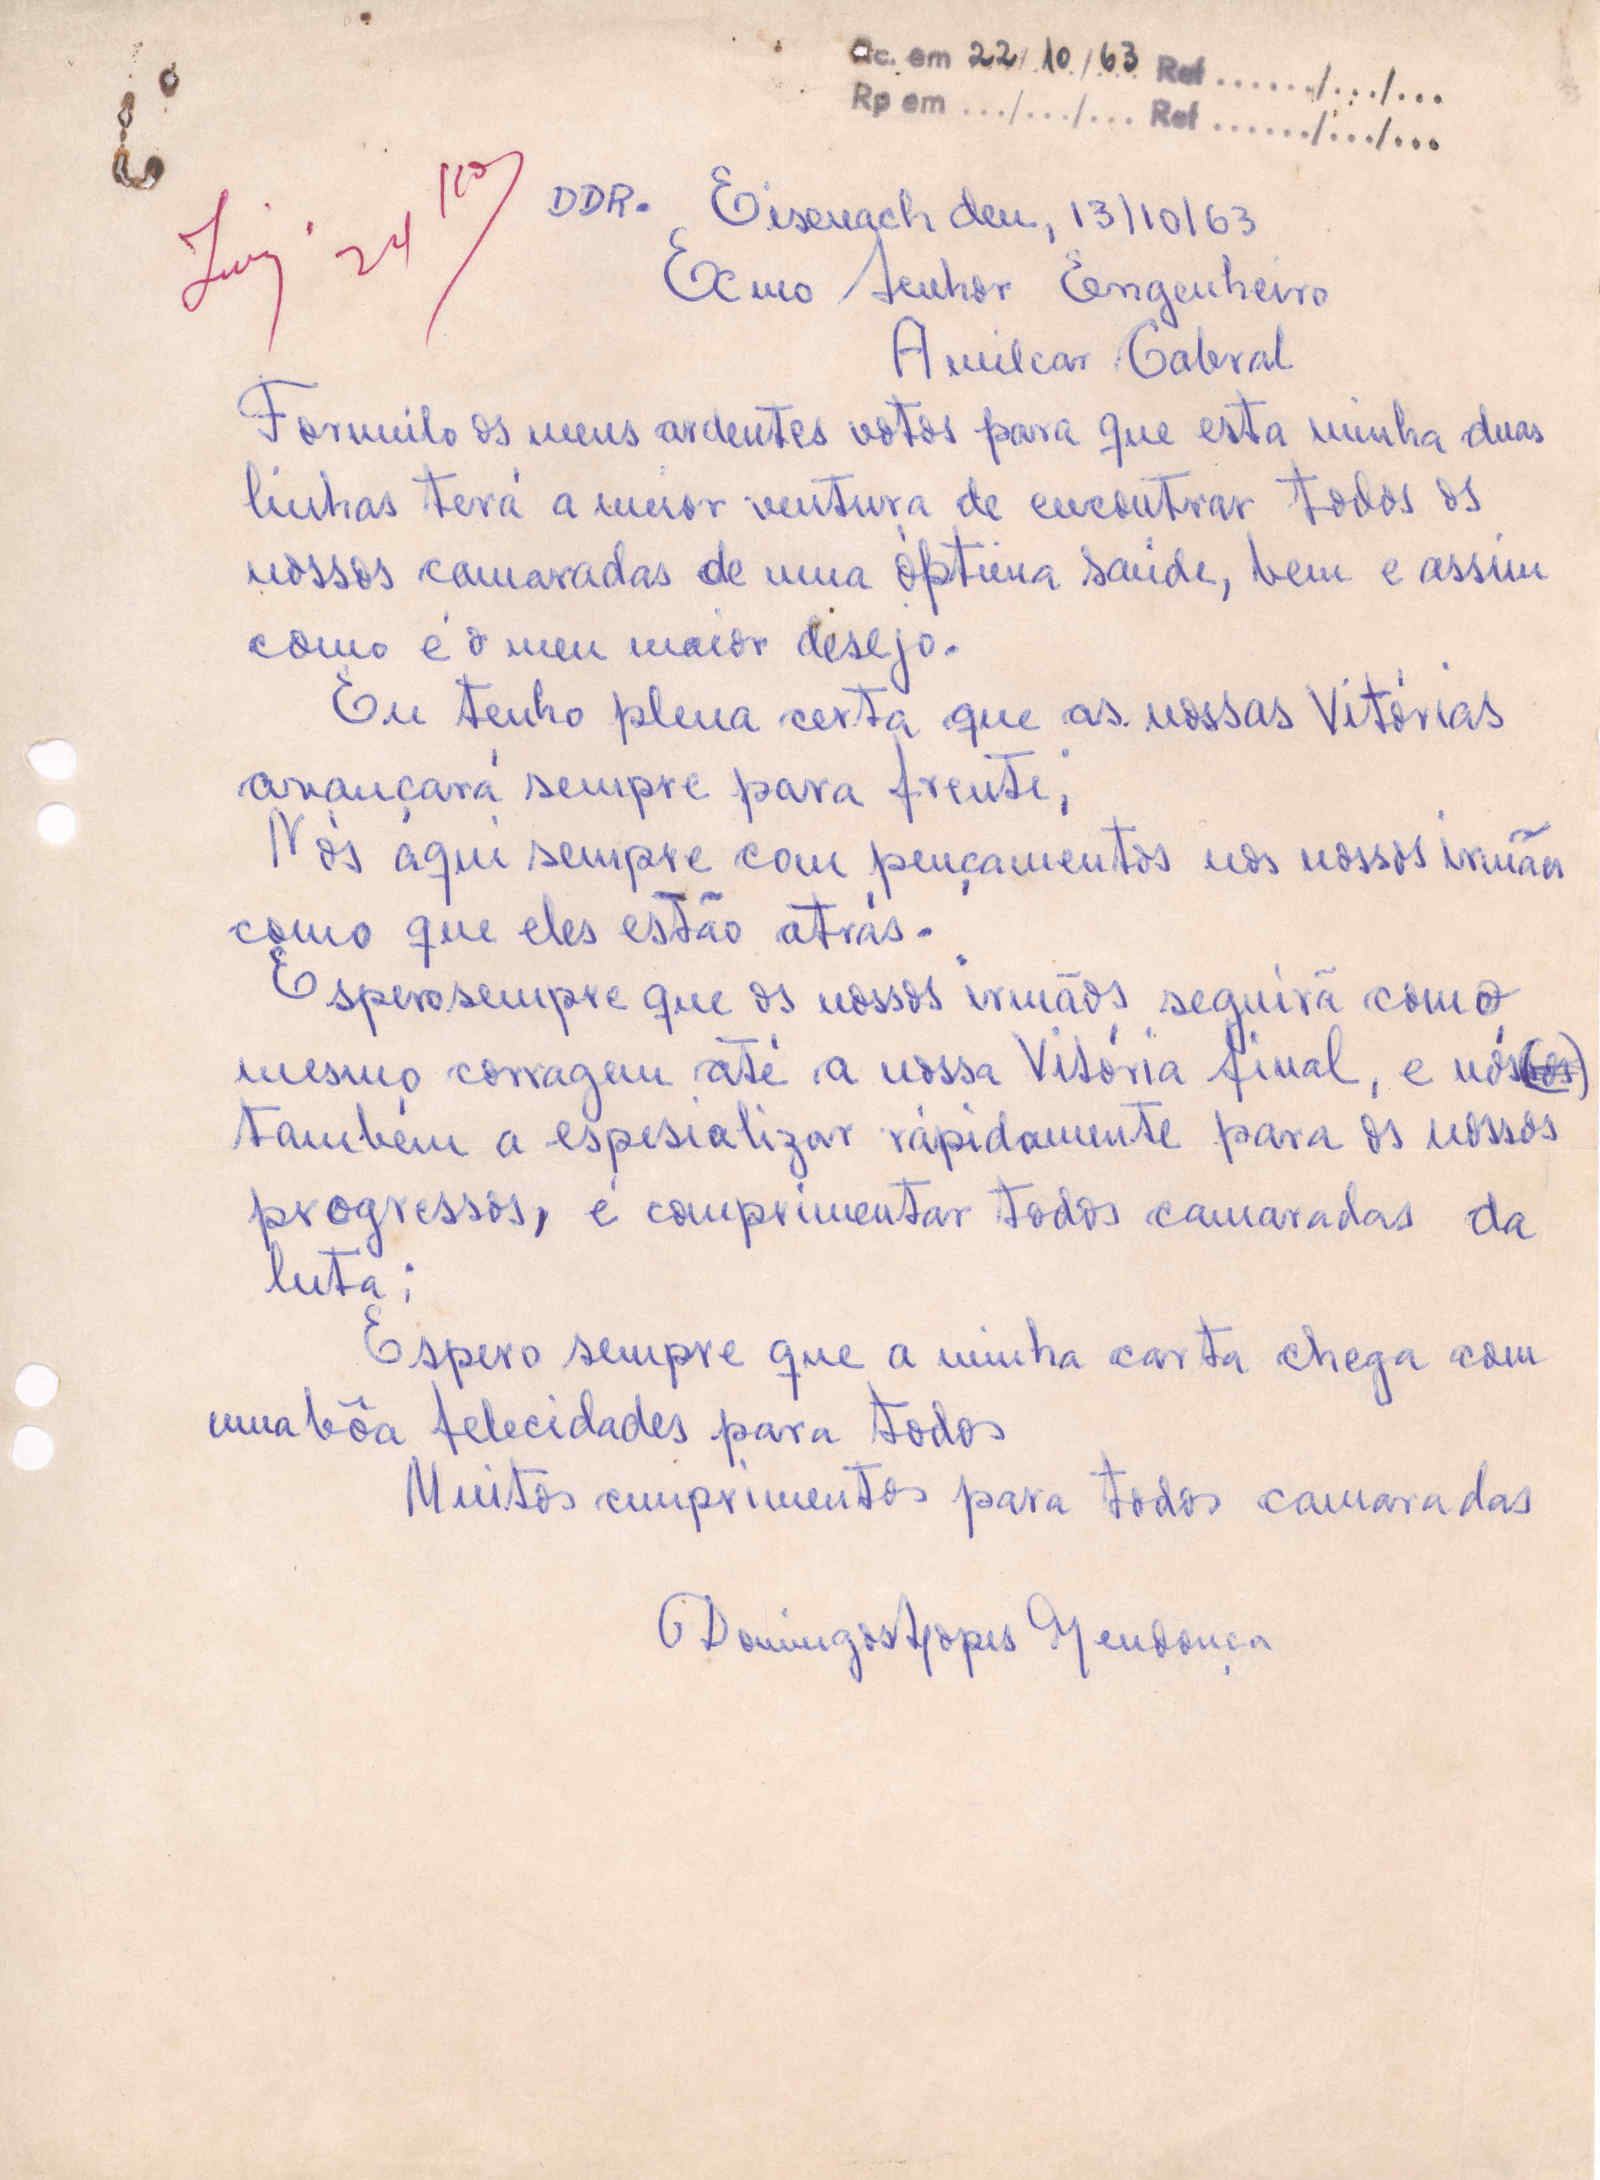 Rc. em 22/10/63 Ref ....../.../...
Rp em .../.../... Ref ....../.../...
24/10
DDR. Eisenach den, 13/10/63
Exmo Senhor Engenheiro
Amilcar Cabral
Formulo os meus ardentes votos para que esta minha duas
linhas terá a meior ventura de encontrar todos os
nossos camaradas de uma óptima saúde, bem e assim
como é o meu maior desejo.
Eu tenho plena certa que as nossas Vitórias
avançará sempre para frente;
Nós áqui sempre com pençamentos nos nossos irmãos
como que eles estão atrás.
Espero sempre que os nossos irmãos seguirã como
mesmo corragem até a nossa Vitória final, e nós
também a espesializar rápidamente para os nossos
progressos, é comprimentar todos camaradas da
luta;
Espero sempre que a minha carta chega com
uma bôa felecidades para todos
Muitos cumprimentos para todos camaradas
Domingos Lopes Mendonça